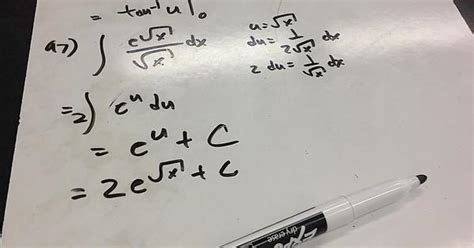 = tan⁻¹ u]₀
a7) ∫ e^√x / √x dx    u = √x
du = 1/(2√x) dx
2 du = 1/√x dx
= 2∫ e^u du
= e^u + C
= 2e^√x + C
EXPO